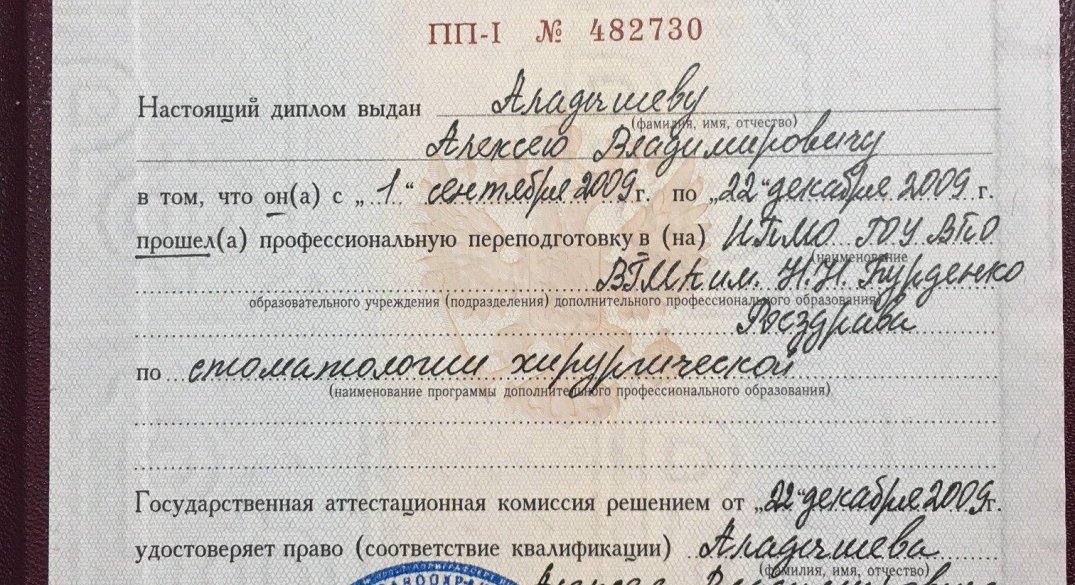 ПП-I № 482730
Настоящий диплом выдан Аладышеву
(фамилия, имя, отчество)
Алексею Владимировичу
в том, что он(а) с „1“ сентября 2009 г. по „22“ декабря 2009 г.
прошел(а) профессиональную переподготовку в (на) ИПМО ГОУ ВПО
(наименование
ВГМА им. Н.Н. Бурденко
образовательного учреждения (подразделения) дополнительного профессионального образования)
Росздрава
по стоматологии хирургической
(наименование программы дополнительного профессионального образования)
Государственная аттестационная комиссия решением от „22“ декабря 2009 г.
удостоверяет право (соответствие квалификации) Аладышева
(фамилия, имя, отчество)